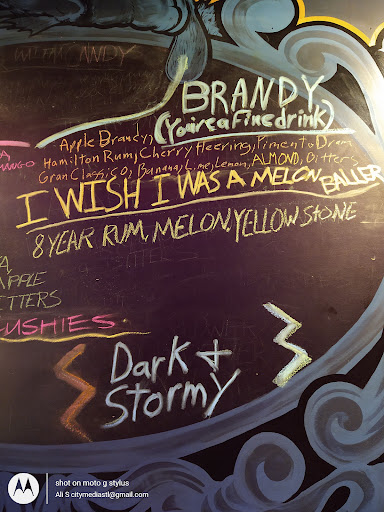 BRANDY
(You're a Fine drink)
Apple Brandy, 
Hamilton Rum, Cherry Heering, Pimento Dram
Gran Classico, Banana, Lime, Lemon, ALMOND, Bitters
I WISH I WAS A MELON BALLER
8 YEAR RUM, MELON, YELLOW STONE
A
ANGO
A,
APPLE
ITTERS
USHIES
Dark +
Stormy
shot on moto g stylus
Ali S citymediastl@gmail.com